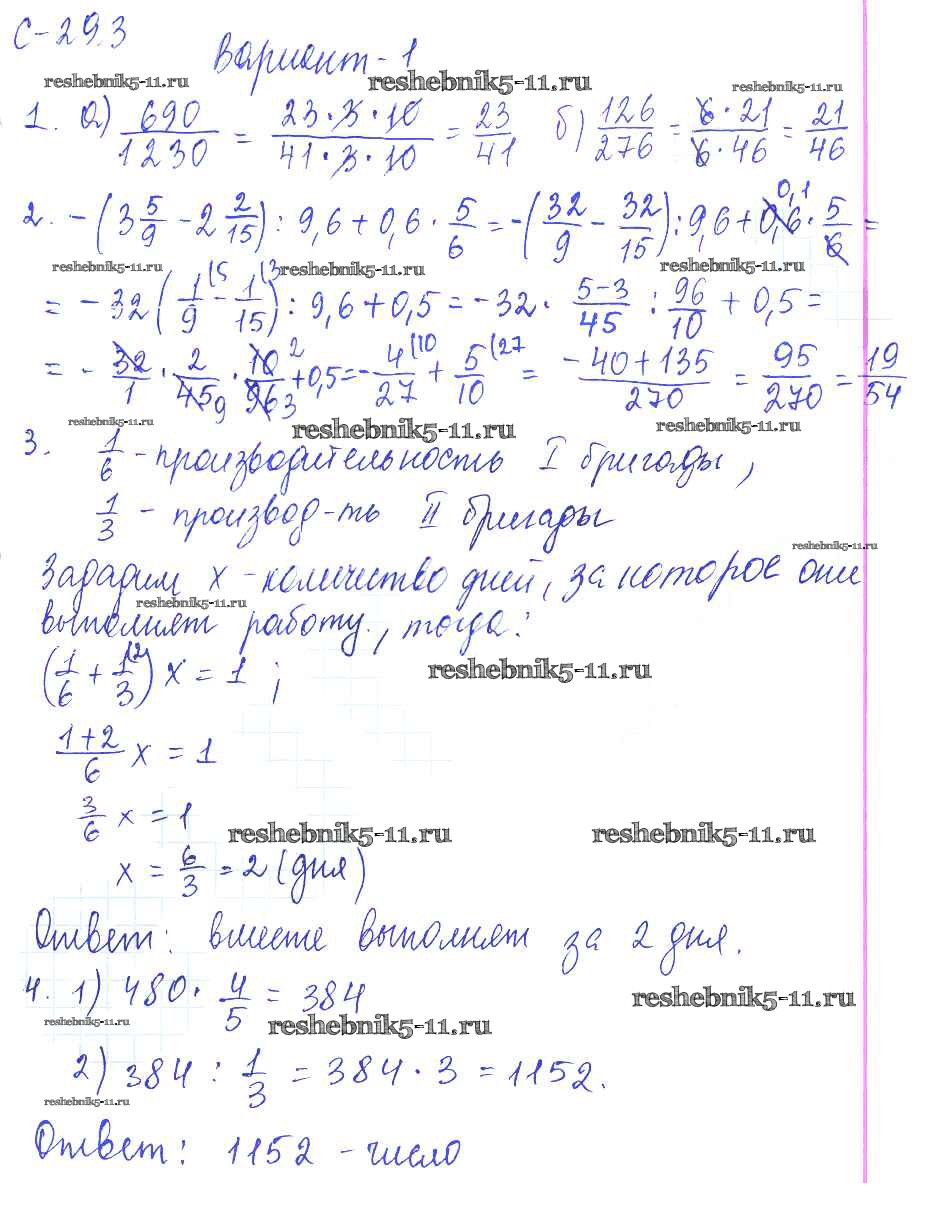 С-29.3
Вариант-1
reshebnik5-11.ru reshebnik5-11.ru reshebnik5-11.ru
1. а) 690/1230 = 23·3·10/41·3·10 = 23/41 б) 126/276 = 6·21/6·46 = 21/46
2. -(3 5/9 - 2 2/15) : 9,6 + 0,6 · 5/6 = -(32/9 - 32/15) : 9,6 + 0,6 0,1 · 5/6 =
reshebnik5-11.ru reshebnik5-11.ru reshebnik5-11.ru
= -32 (1/9 (5 - 1/15 (3) : 9,6 + 0,5 = -32 · 5-3/45 : 96/10 + 0,5 =
= - 32/1 · 2/45 9 · 10 2/96 3 + 0,5 = - 4/27 (10 + 5/10 (27 = -40+135/270 = 95/270 = 19/54
reshebnik5-11.ru reshebnik5-11.ru reshebnik5-11.ru
3. 1/6 - производительность I бригады,
1/3 - производ-ть II бригады
reshebnik5-11.ru
Зададим x - количество дней, за которое они
reshebnik5-11.ru
выполнят работу, тогда:
(1/6 + 1/3 (2) x = 1 ;
reshebnik5-11.ru
1+2/6 x = 1
3/6 x = 1
reshebnik5-11.ru reshebnik5-11.ru
x = 6/3 = 2 (дня)
Ответ: вместе выполнят за 2 дня.
4. 1) 480 · 4/5 = 384
reshebnik5-11.ru
reshebnik5-11.ru reshebnik5-11.ru
2) 384 : 1/3 = 384 · 3 = 1152.
reshebnik5-11.ru
Ответ: 1152 - число